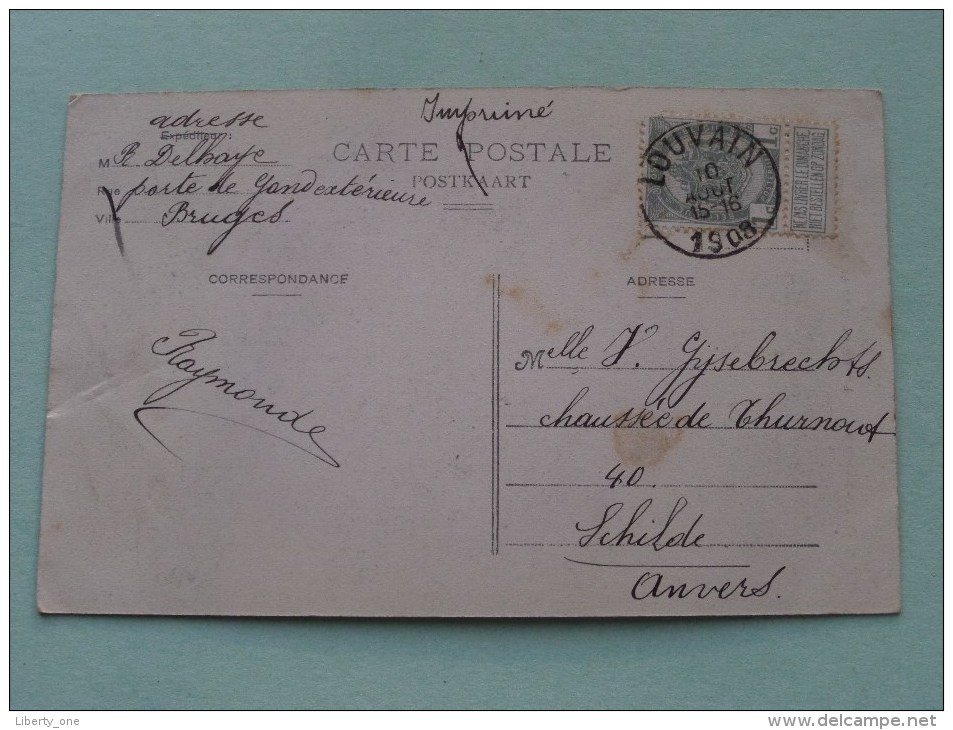 Imprimé
adresse
Expéditeur:
M R. Delhaye
Rue porte de Gand extérieure
Ville Bruges.
CARTE POSTALE
POSTKAART
LOUVAIN
10
AOUT
15-16
1908
NE PAS LIVRER LE DIMANCHE
NIET BESTELLEN OP ZONDAG
CORRESPONDANCE
ADRESSE
Raymonde
Melle V. Gijsebrechts.
chaussée de Thurnout
40.
Schilde
Anvers.
Liberty_one
www.delcampe.net